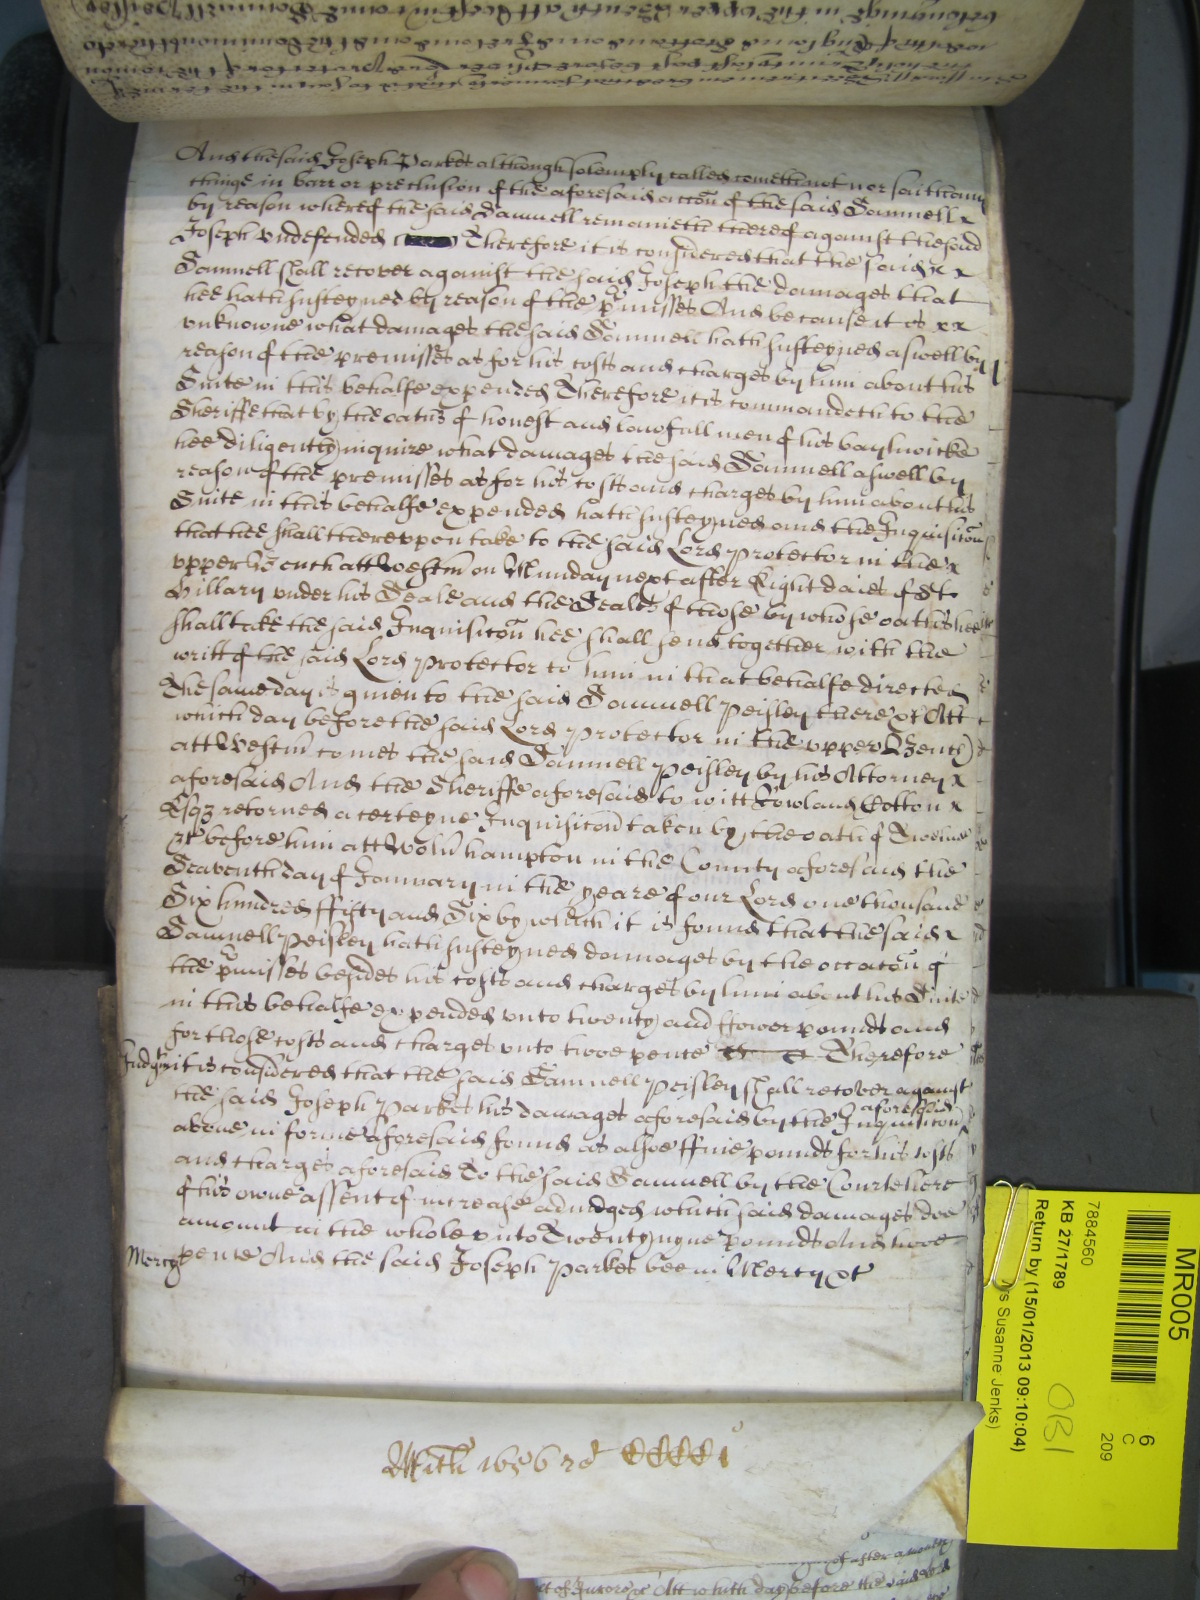 And the said Joseph Parkes although solemply called cometh not nor saith any
thinge in barr or preclusion of the aforesaid accōn of the said Samuell x
by reason whereof the said Samuell remaineth thereof against the said
Joseph undefended Therefore it is considered that the said x x
Samuell shall recover against the said Joseph the damages that
hee hath susteyned by reason of the p̄misses And because it is x x
unknowne what damages the said Samuell hath susteyned aswell by
reason of the premisses as for his costs and charges by him about his
Suite in this behalfe expended Therefore it is commandeth to the
Sheriffe that by the oathes of honest and lawfull men of his bayliwicke
hee diligently inquire what damages the said Samuell aswell by
reason of the premisses as for his costs and charges by him about his
Suite in this behalfe expended hath susteyned and the Inquisicōn
that hee shall thereupon take to the said Lord Protector in the x
upper Bench att Westm̄ on Munday next after Eight daies of St
Hillary under his Seale and the Seales of those by whose oathes hee
shall take the said Inquisicōn hee shall send together with the
writt of the said Lord Protector to him in that behalfe directed
The same day is given to the said Samuell Peisley there &c Att
which day before the said Lord Protector in the upper Bench
att Westm̄ comes the said Samuell Peisley by his Attorney x
aforesaid And the Sheriffe aforesaid to witt Rowland Cotton x
Esqʒ returned a certeyne Inquisicōn taken by the oath of Twelve
&c before him att Wolv̄hampton in the County aforesaid the
Seaventh day of January in the yeare of our Lord one thousand
Six hundred ffifty and Six by which it is found that the said x
Samuell Peisley hath susteyned damages by the occacōn of
the p̄misses besides his costs and charges by him about his Suite
in this behalfe expended unto twenty and ffower pounds and
for those costs and charges unto twoe pence Therefore
Judgm̄ it is considered that the said Samuell Peisley shall recover against
the said Joseph Parkes his damages aforesaid by the Inquisicōn aforesaid
above in forme aforesaid found as alsoe ffive pounds for his costs
and charges aforesaid To the said Samuell by the Courte here
of his owne assent of increase adiudged which said damages doe
amount in the whole unto Twenty nyne pounds and twoe
Mercy pence And the said Joseph Parkes bee in Mercy &c
Mich 1656 rd CCCCi
MR005
6
C
209
7884560
KB 27/1789
Return by (15/01/2013 09:10:04)
Susanne Jenks)
OBI